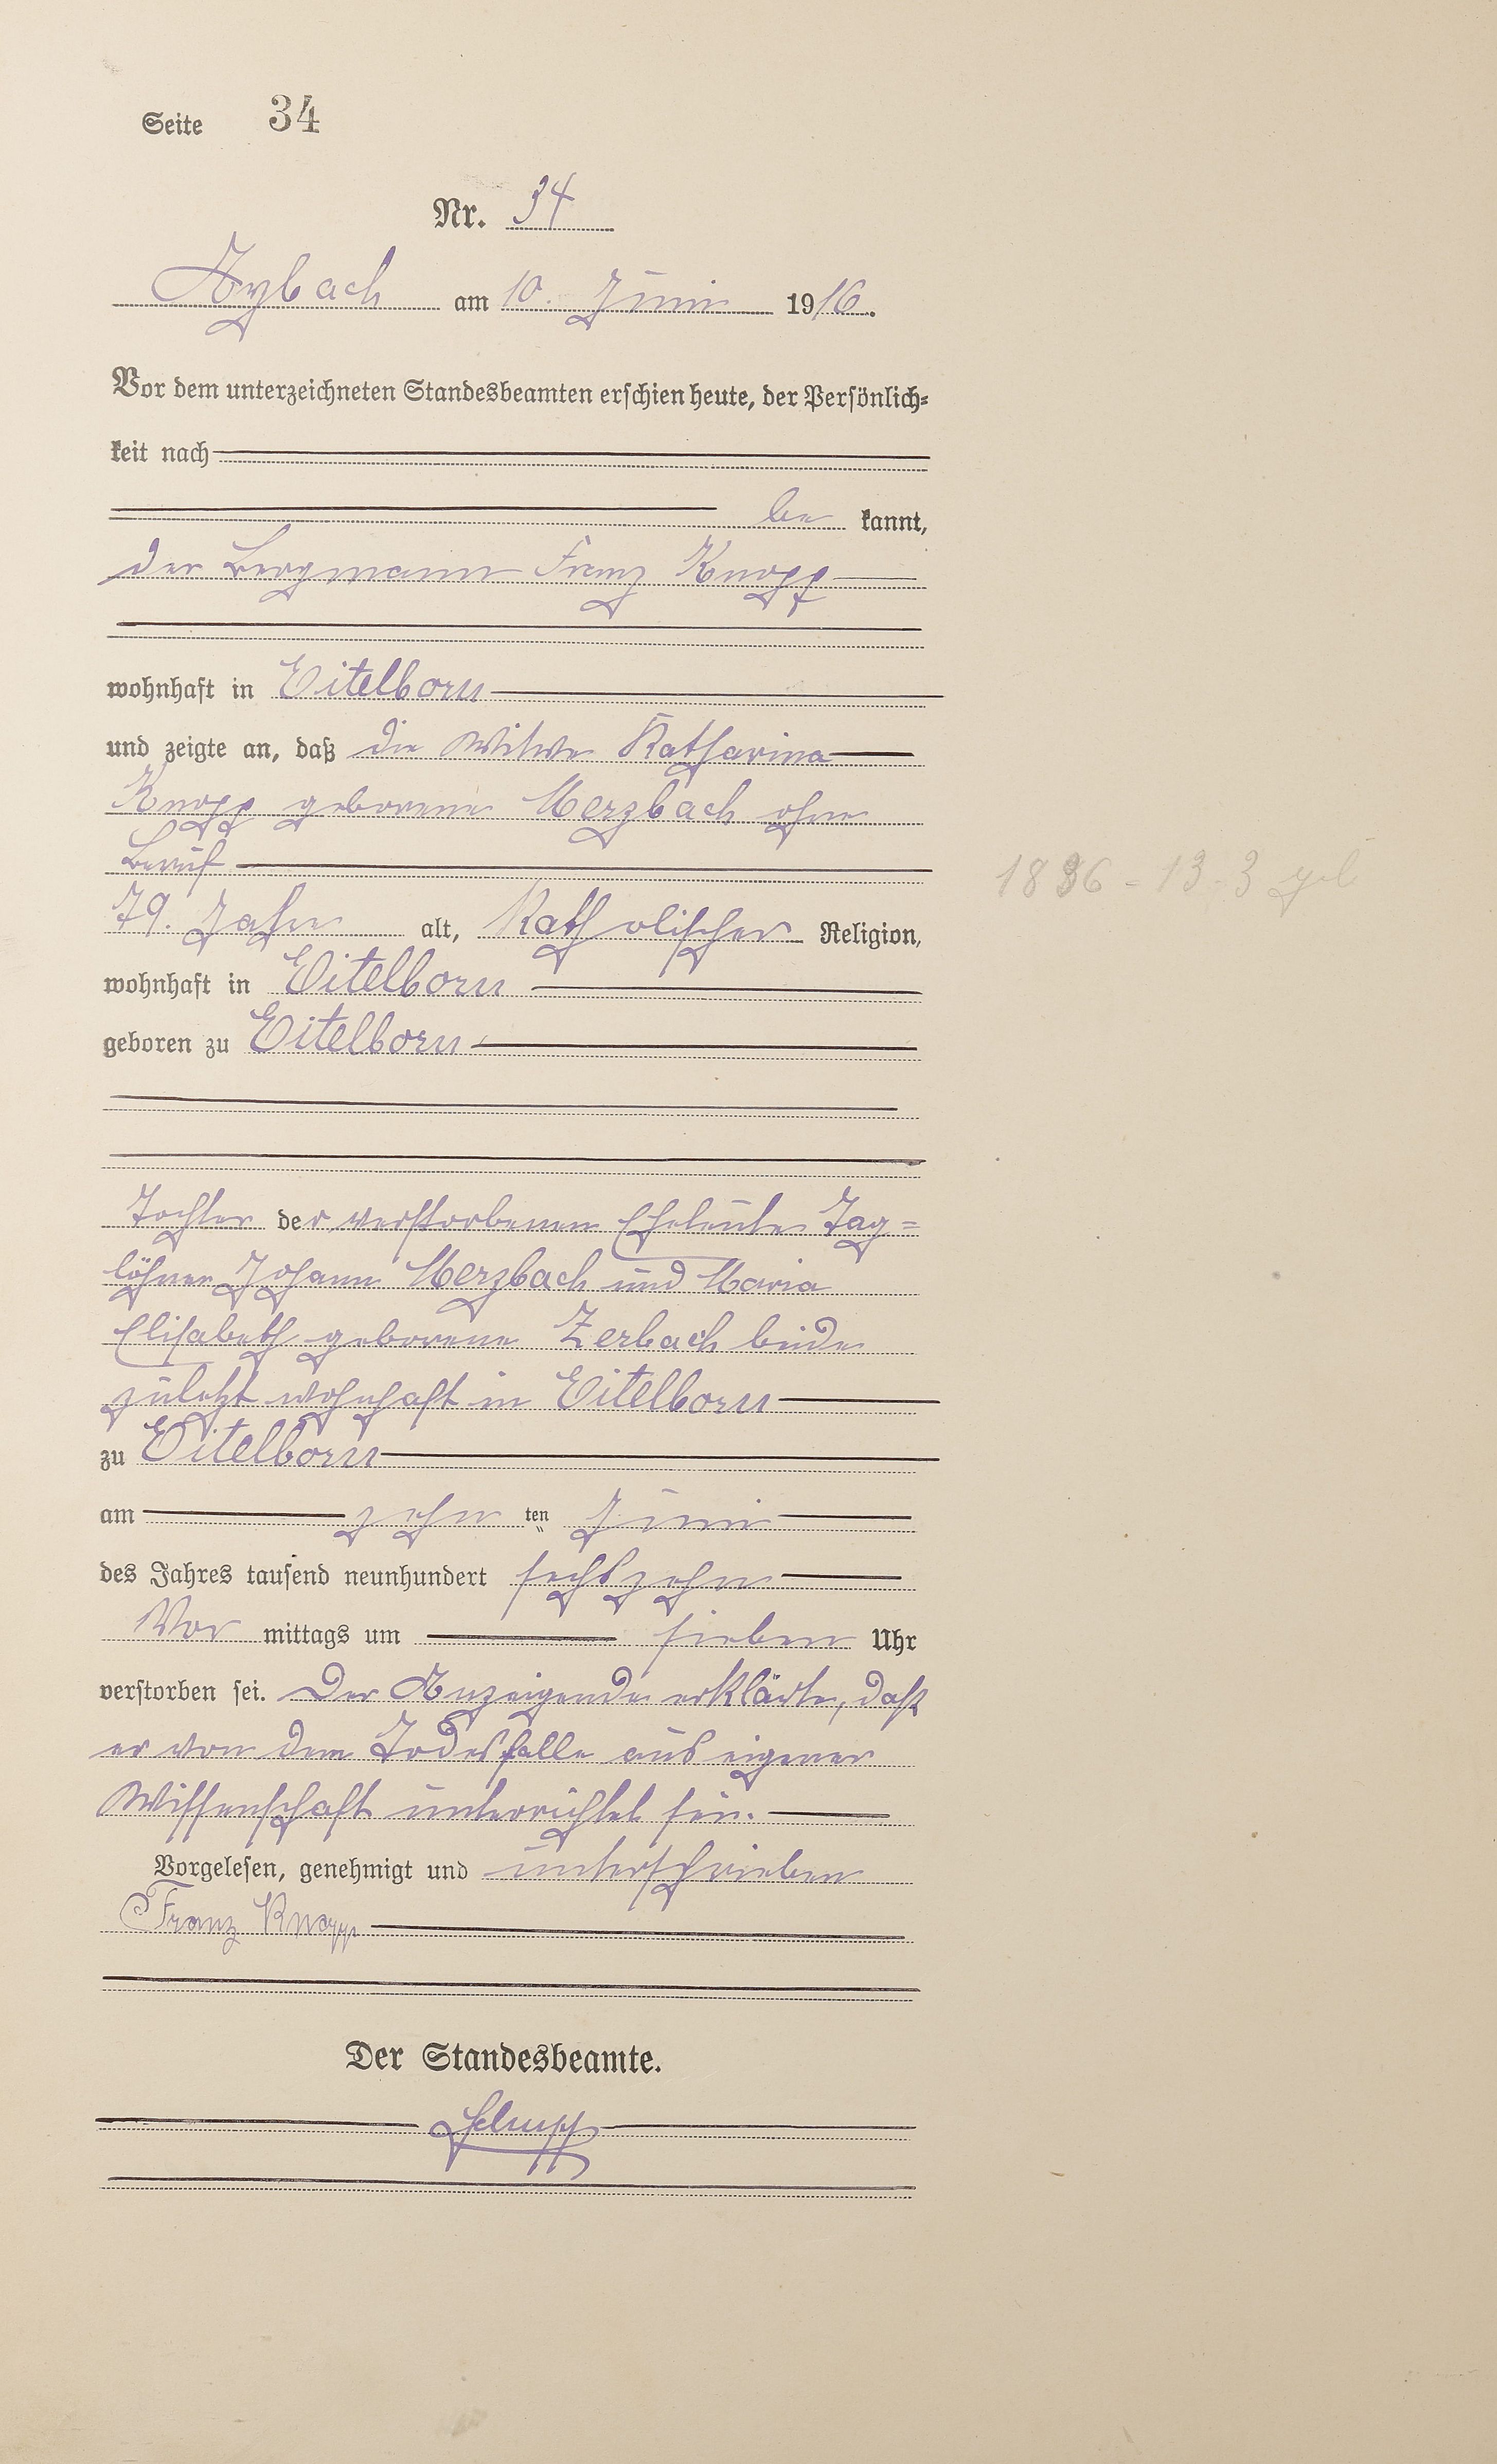 Seite 34
Nr. 34
Arzbach am 10. Juni 1916.
Vor dem unterzeichneten Standesbeamten erschien heute, der Persönlich-
keit nach
be kannt,
der Bergmann Franz Knopp
wohnhaft in Eitelborn
und zeigte an, daß die Witwe Katharina
Knopp geborene Merzbach ohne
Beruf
1836 - 13.3 geb
79. Jahre alt, Katholischer Religion,
wohnhaft in Eitelborn
geboren zu Eitelborn
Tochter der verstorbenen Eheleute Tag=
löhner Johann Merzbach und Maria
Elisabeth geborene Zerbach beide
zuletzt wohnhaft in Eitelborn
zu Eitelborn
am zehn ten Juni
des Jahres tausend neunhundert sechszehn
Vor mittags um sieben Uhr
verstorben sei. Der Anzeigende erklärte, daß
er von dem Todesfalle aus eigener
Wissenschaft unterrichtet sei.
Vorgelesen, genehmigt und unterschrieben
Franz Knopp
Der Standesbeamte.